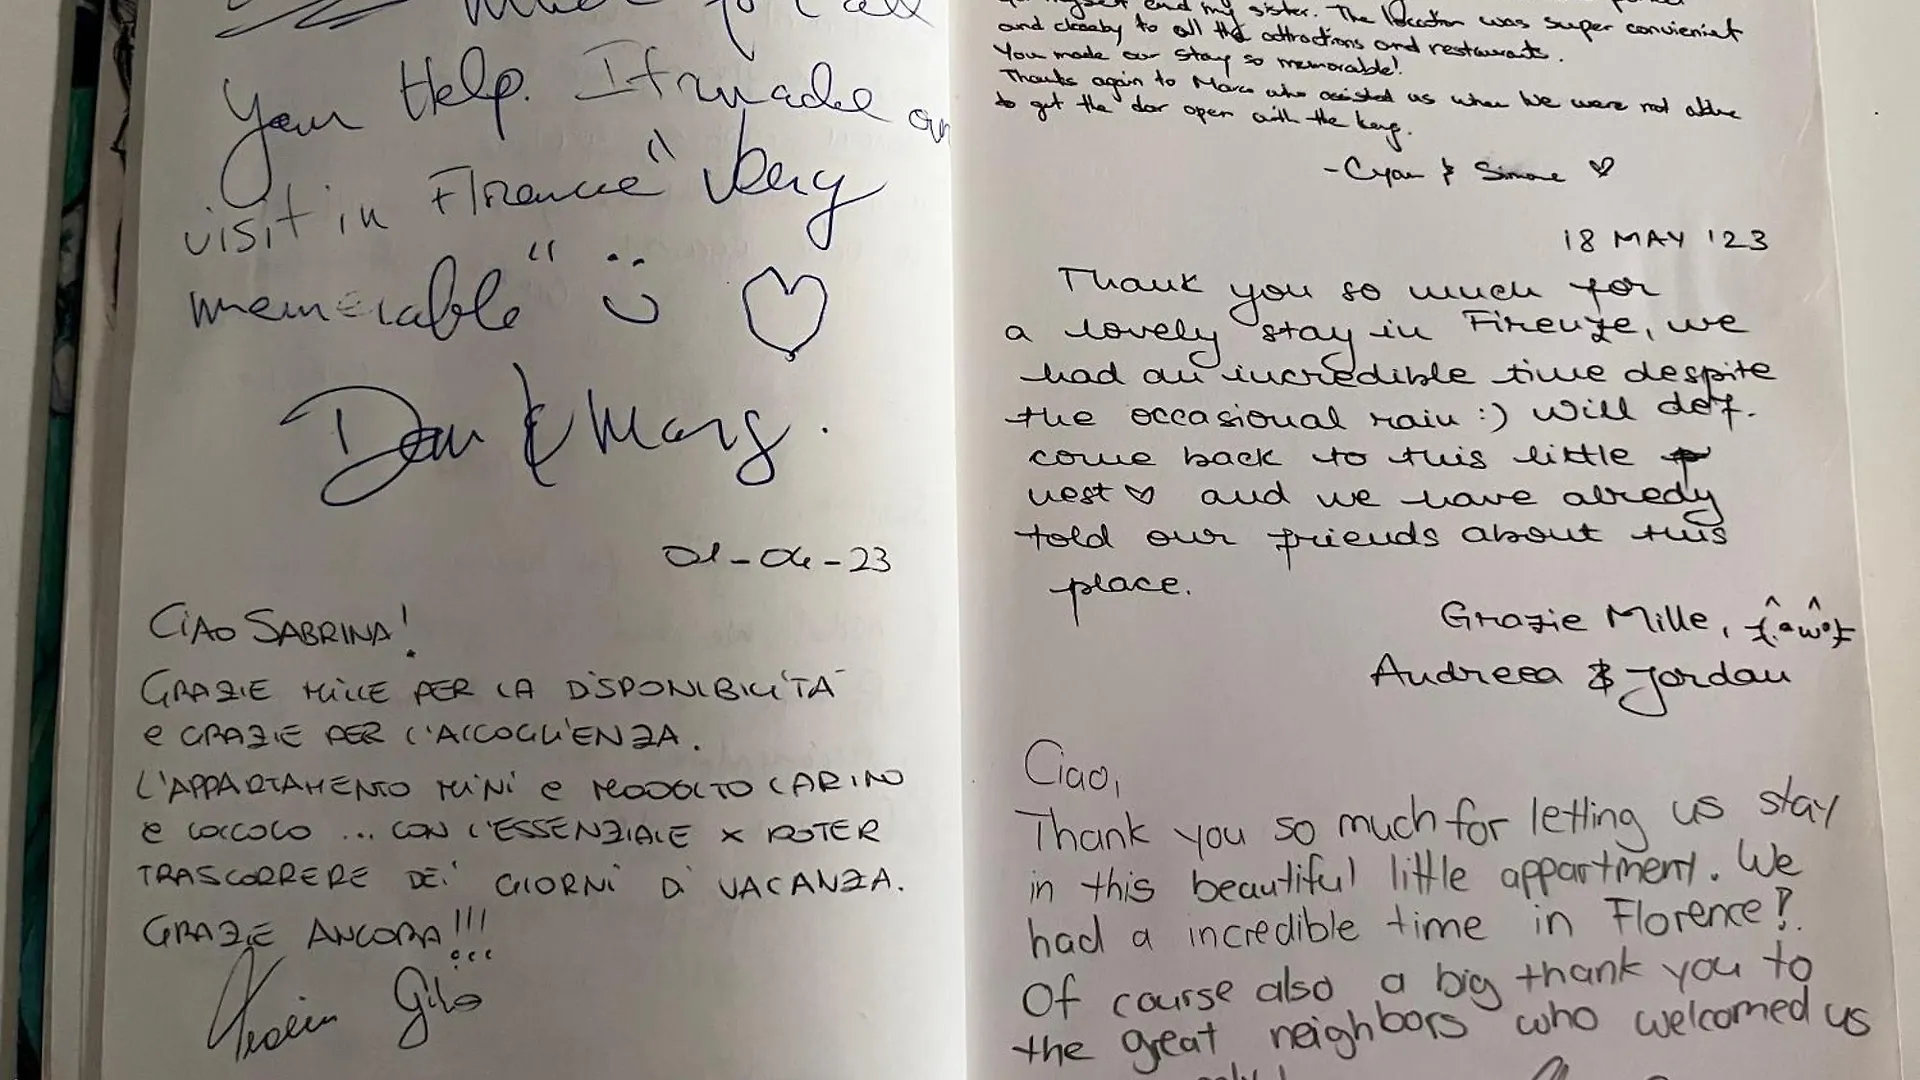 your Help. It made our
visit in Florence "Very
memorable" :)
Dan & Marg.
01-04-23
CIAO SABRINA!
GRAZIE MILLE PER LA DISPONIBILITÀ
e GRAZIE PER L'ACCOGLIENZA.
L'APPARTAMENTO MINI e MOOOLTO CARINO
e COCCOLO ... CON L'ESSENZIALE X POTER
TRASCORRERE DEI GIORNI DI VACANZA.
GRAZIE ANCORA!!!
and my sister. The location was super convienient
and closeby to all the attractions and restaurants.
You made our stay so memorable!
Thanks again to Marco who assisted us when we were not able
to get the door open with the key.
- Cyan & Simone ♡
18 MAY '23
Thank you so much for
a lovely stay in Firenze, we
had an incredible time despite
the occasional rain :) Will def.
come back to this little
nest ♡ and we have alredy
told our friends about this
place.
Grazie Mille,
Andreea & Jordan
Ciao,
Thank you so much for letting us stay
in this beautiful little appartment. We
had a incredible time in Florence!
Of course also a big thank you to
the great neighbors who welcomed us